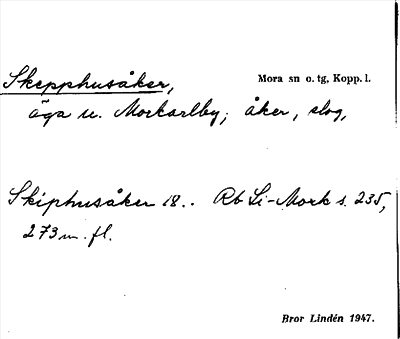 Skepphusåker,
Mora sn o. tg, Kopp. l.
äga u. Morkarlby; åker, slog,
Skiphusåker 18.. Rb Li-Mork s. 235,
273 m. fl.
Bror Lindén 1947.